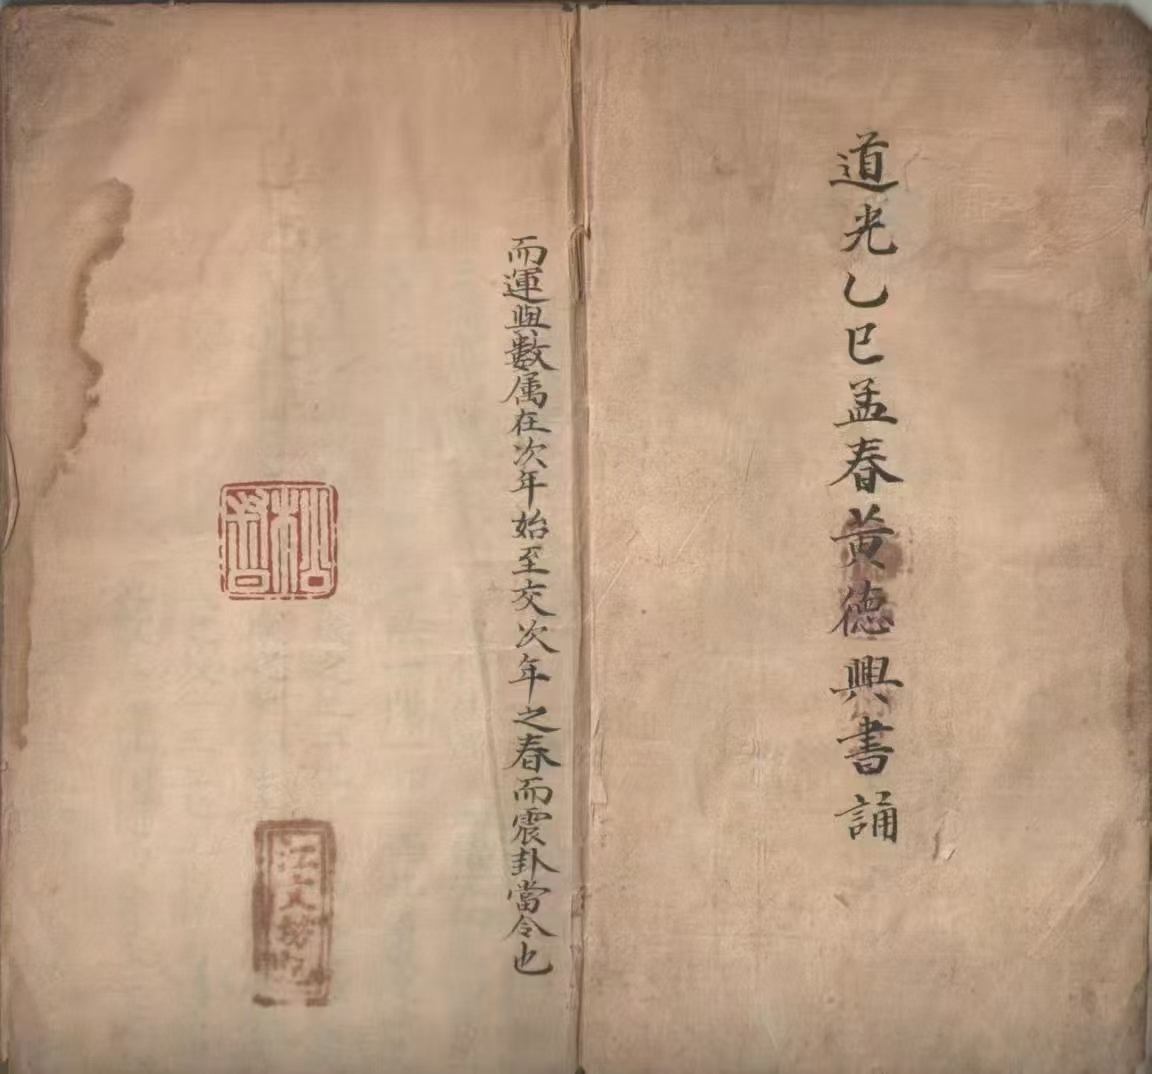 道光乙巳孟春黄德興書誦
而運與數属在次年始至交次年之春而震卦當令也